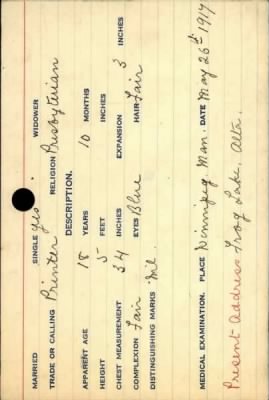 MARRIED SINGLE yes WIDOWER
TRADE OR CALLING Printer RELIGION Presbyterian
DESCRIPTION.
APPARENT AGE 18 YEARS 10 MONTHS
HEIGHT 5 FEET INCHES
CHEST MEASUREMENT 34 INCHES EXPANSION 3 INCHES
COMPLEXION Fair EYES Blue HAIR Fair
DISTINGUISHING MARKS Nil.
MEDICAL EXAMINATION. PLACE Winnipeg, Man. DATE May 26th 1917
Present address Frog Lake, Alta.